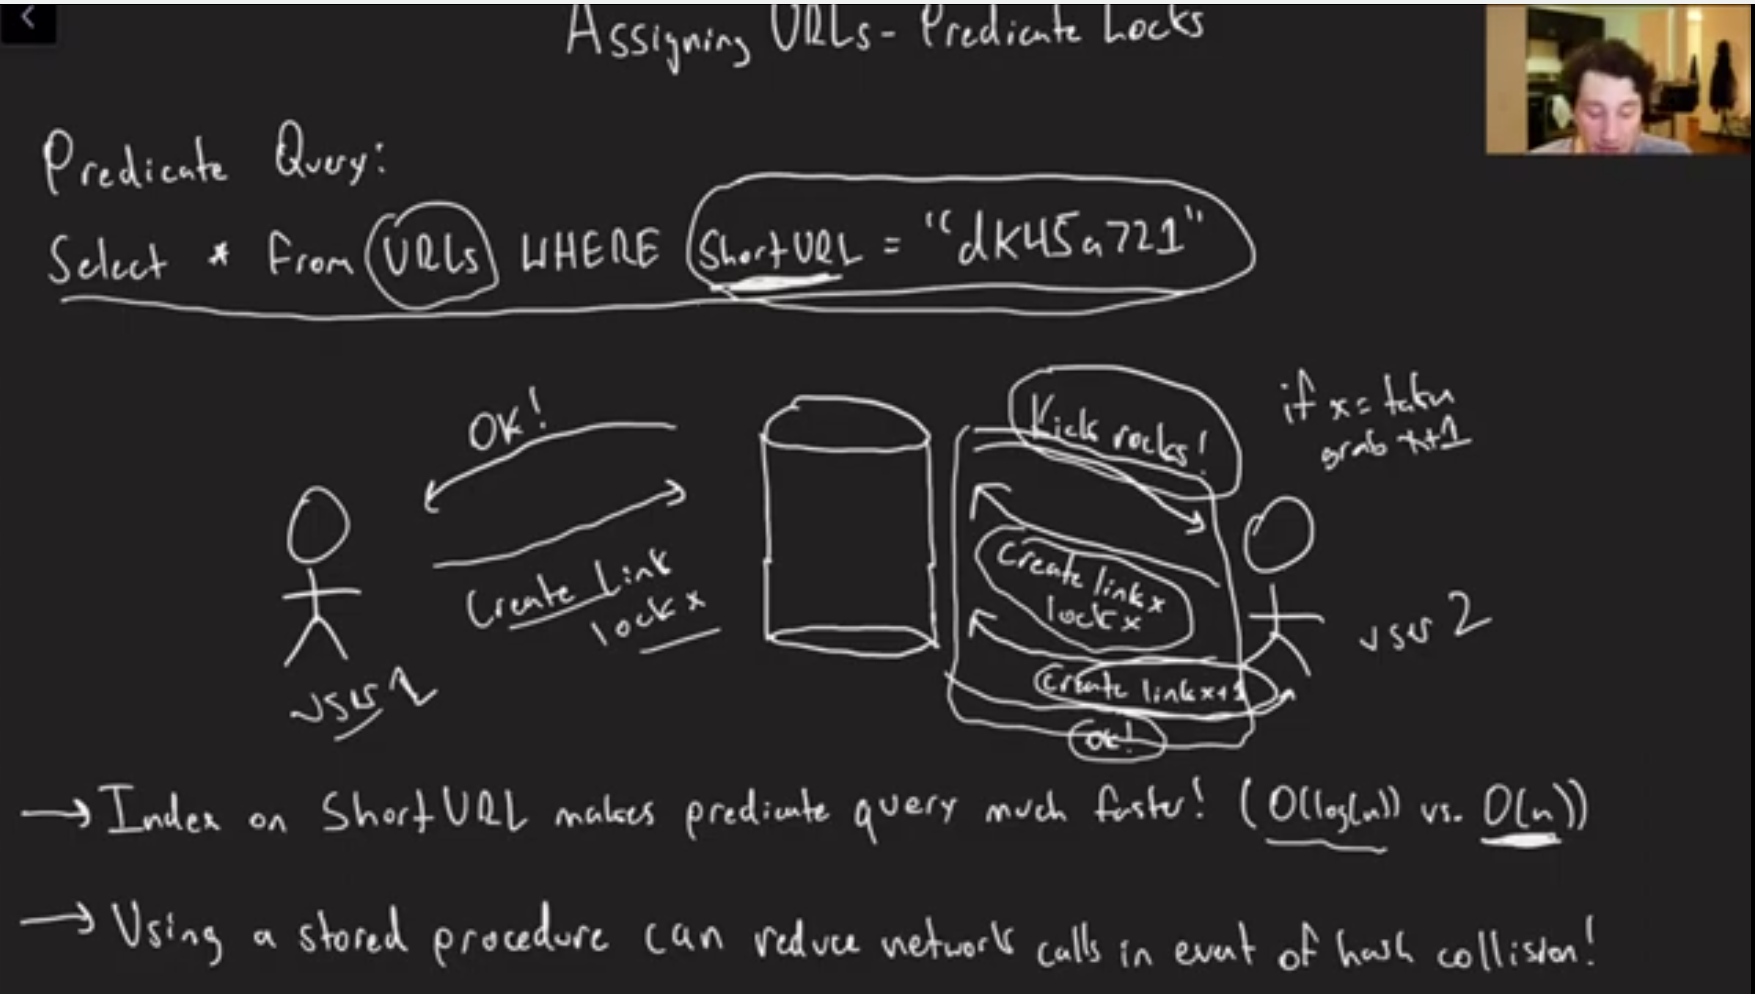 Assigning URLs - Predicate Locks
Predicate Query:
Select * From URLs WHERE ShortURL = "dK45a721"
OK!
Create Link
lock x
user 1
Kick rocks!
if x = taken
grab x+1
Create link x
lock x
Create link x+1
OK!
user 2
→ Index on ShortURL makes predicate query much faster! (O(log(n)) vs. O(n))
→ Using a stored procedure can reduce network calls in event of hash collision!